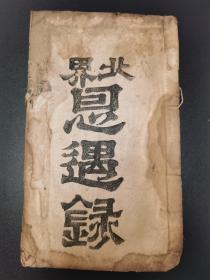 北界
恩遇錄